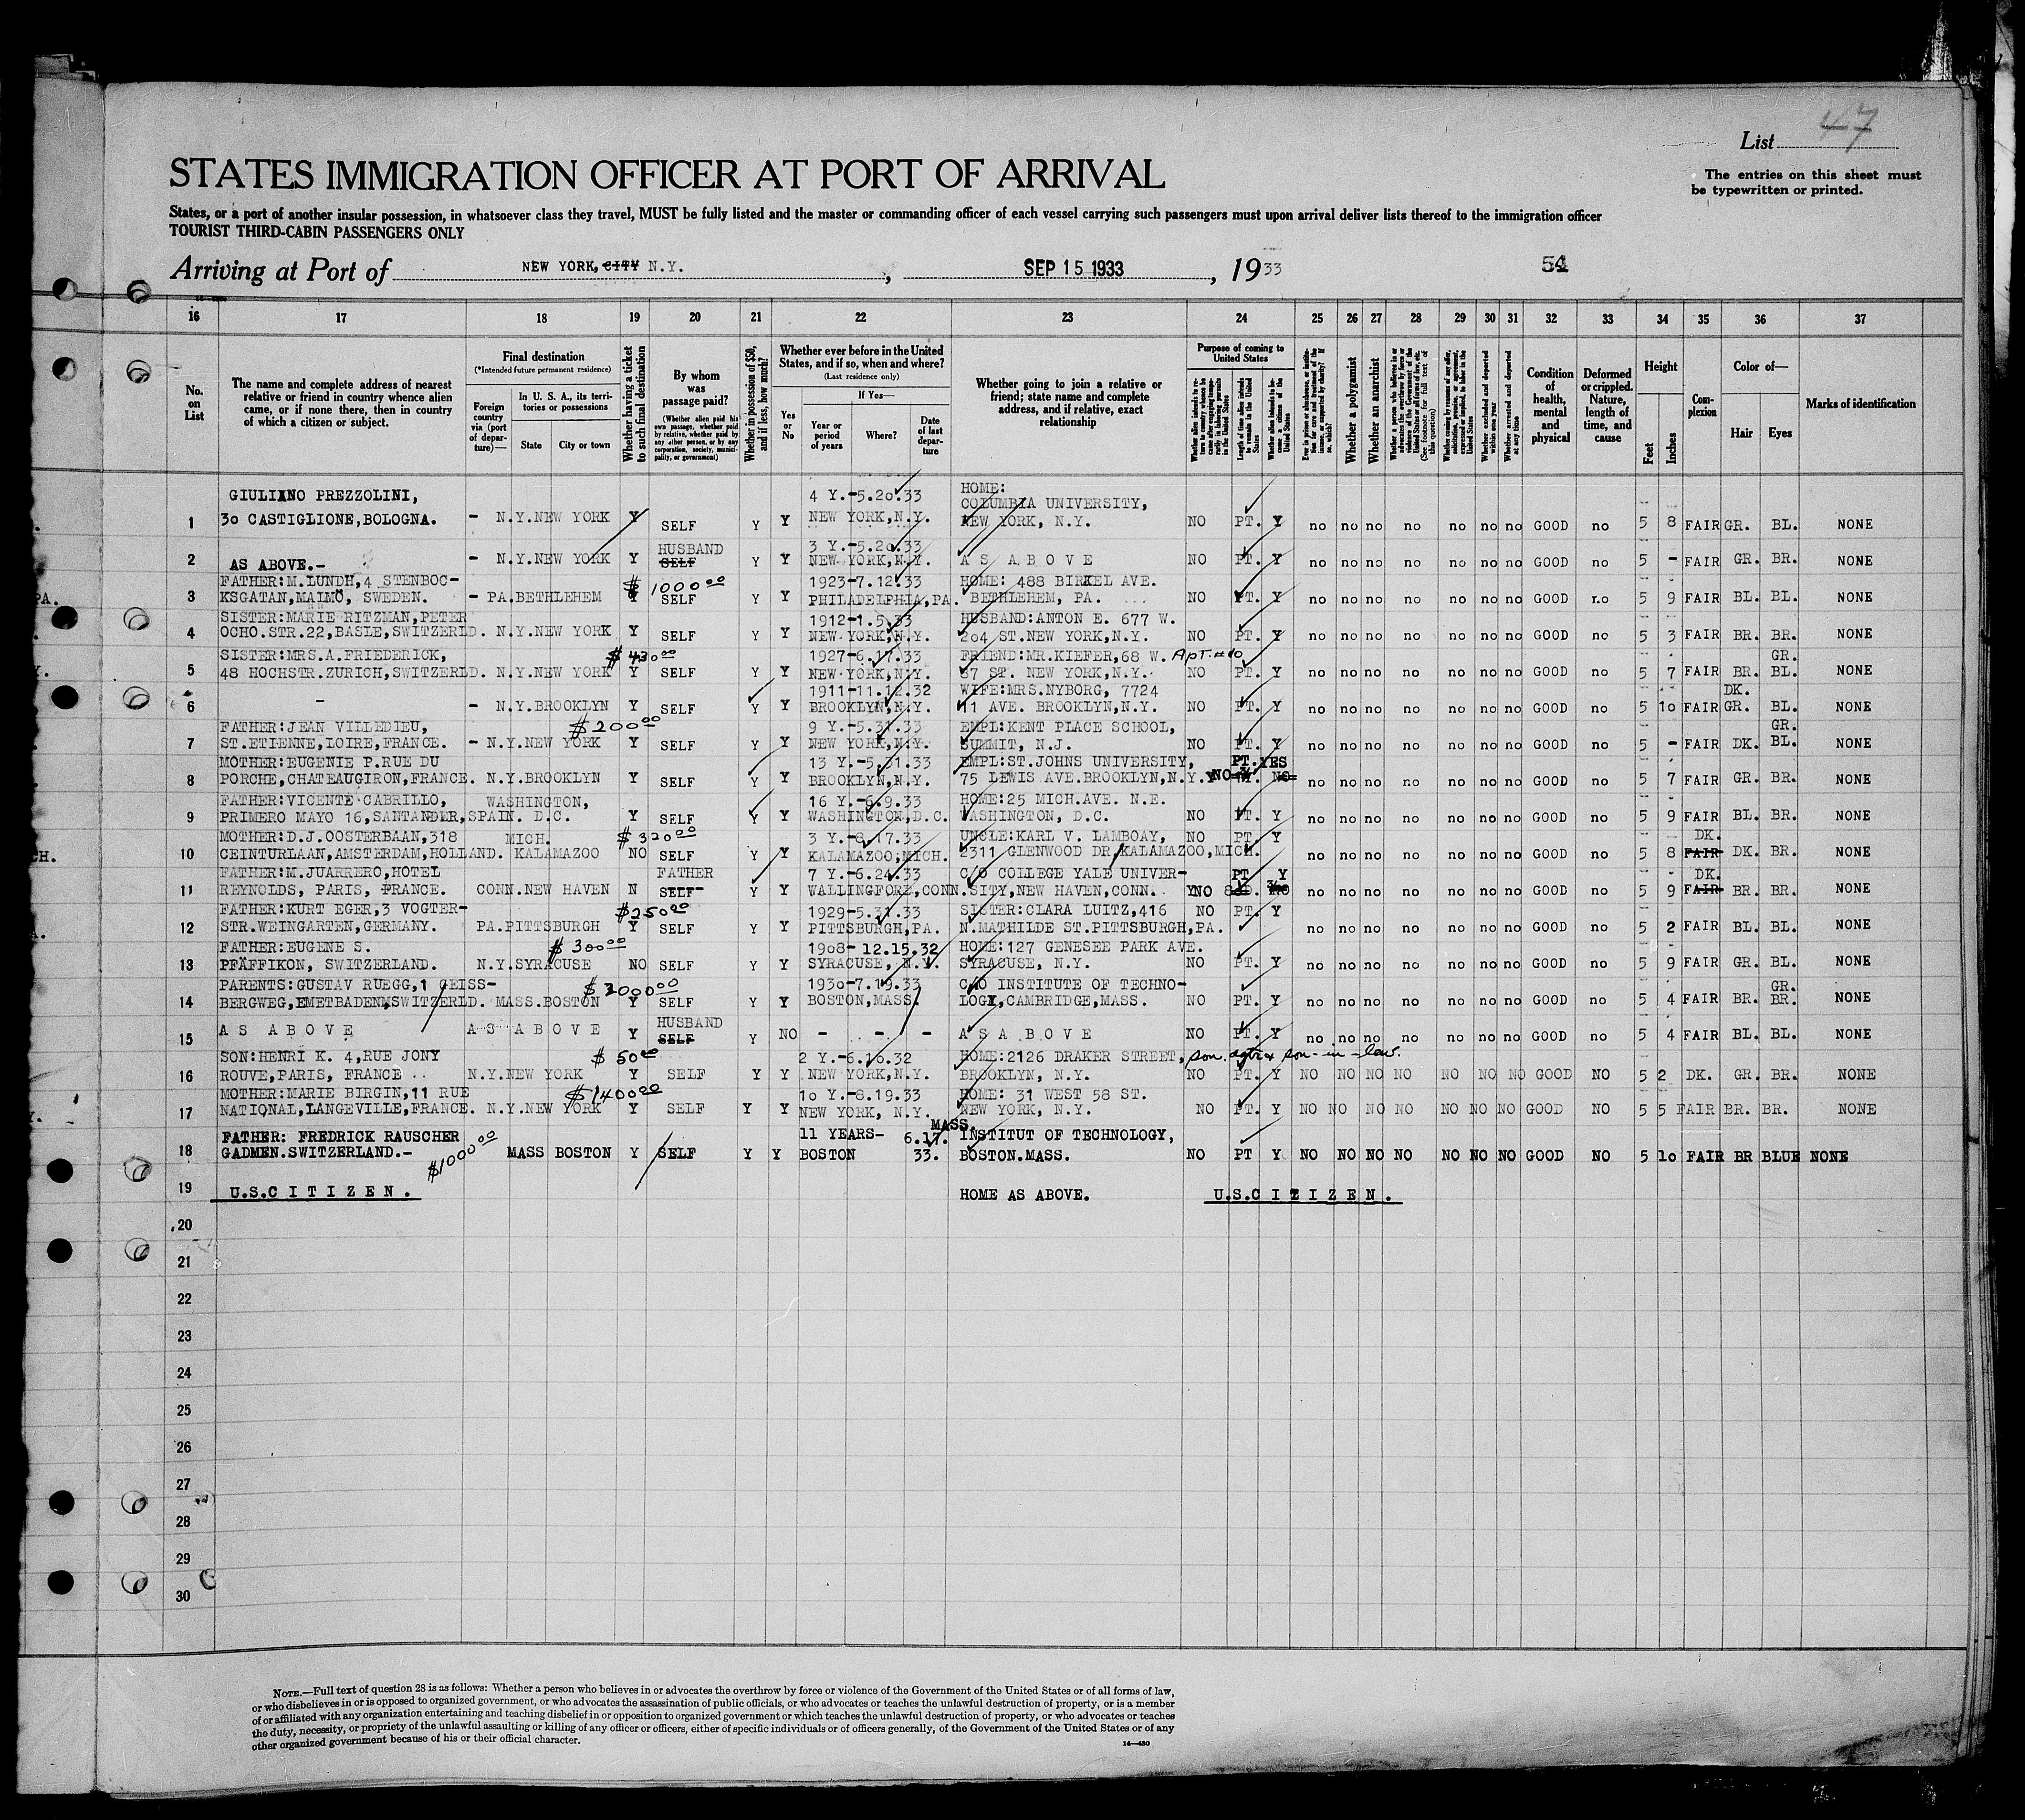 47
List
The entries on this sheet must
be typewritten or printed.
STATES IMMIGRATION OFFICER AT PORT OF ARRIVAL
States, or a port of another insular possession, in whatsoever class they travel, MUST be fully listed and the master or commanding officer of each vessel carrying such passengers must upon arrival deliver lists thereof to the immigration officer
TOURIST THIRD-CABIN PASSENGERS ONLY
Arriving at Port of NEW YORK, CITY N.Y. , SEP 15 1933 , 1933 54
16 17 18 19 20 21 22 23 24 25 26 27 28 29 30 31 32 33 34 35 36 37
No. on List
The name and complete address of nearest relative or friend in country whence alien came, or if none there, then in country of which a citizen or subject.
Final destination
(*Intended future permanent residence)
Foreign country via (port of departure)—
In U. S. A., its territories or possessions
State City or town
Whether having a ticket to such final destination
By whom was passage paid?
(Whether alien paid his own passage, whether paid by relative, whether paid by any other person, or by any corporation, society, municipality, or government)
Whether in possession of $50, and if less, how much?
Whether ever before in the United States, and if so, when and where?
(Last residence only)
Yes or No
If Yes—
Year or period of years Where? Date of last departure
Whether going to join a relative or friend; state name and complete address, and if relative, exact relationship
Purpose of coming to United States
Length of time alien intends to remain in the United States
Whether alien intends to become a citizen of the United States
Whether a polygamist
Whether an anarchist
Condition of health, mental and physical
Deformed or crippled. Nature, length of time, and cause
Height
Feet Inches
Complexion
Color of—
Hair Eyes
Marks of identification
GIULIANO PREZZOLINI, 4 Y.-5.20.33 HOME: COLUMBIA UNIVERSITY,
1 30 CASTIGLIONE,BOLOGNA. - N.Y.NEW YORK Y SELF Y Y NEW YORK,N.Y. NEW YORK, N.Y. NO PT. Y no no no no no no no GOOD no 5 8 FAIR GR. BL. NONE
HUSBAND 3 Y.-5.20.33
2 AS ABOVE.- - N.Y.NEW YORK Y SELF Y Y NEW YORK,N.Y. A S A B O V E NO PT. Y no no no no no no no GOOD no 5 - FAIR GR. BR. NONE
FATHER:M.LUNDH,4 STENBOC- $ 1000 00 1923-7.12.33 HOME: 488 BIRKEL AVE.
3 KSGATAN,MALMÖ, SWEDEN. - PA.BETHLEHEM Y SELF Y Y PHILADELPHIA,PA. BETHLEHEM, PA. NO PT. Y no no no no no no no GOOD no 5 9 FAIR BL. BL. NONE
SISTER:MARIE RITZMAN,PETER 1912-1.5.33 HUSBAND:ANTON E. 677 W.
4 OCHO.STR.22,BASLE,SWITZERLD. N.Y.NEW YORK Y SELF Y Y NEW YORK,N.Y. 204 ST.NEW YORK,N.Y. NO PT. Y no no no no no no no GOOD no 5 3 FAIR BR. BR. NONE
SISTER:MRS.A.FRIEDERICK, $ 430 00 1927-6.17.33 FRIEND:MR.KIEFER,68 W. Apt. #10 GR.
5 48 HOCHSTR.ZURICH,SWITZERLD. N.Y.NEW YORK Y SELF Y Y NEW YORK,N.Y. 87 ST. NEW YORK,N.Y. NO PT. Y no no no no no no no GOOD no 5 7 FAIR BR. BL. NONE
- 1911-11.12.32 WIFE:MRS.NYBORG, 7724 DK.
6 - N.Y.BROOKLYN Y SELF Y Y BROOKLYN,N.Y. 11 AVE. BROOKLYN,N.Y. NO PT. Y no no no no no no no GOOD no 5 10 FAIR GR. BL. NONE
FATHER:JEAN VILLEDIEU, $200 00 9 Y.-5.31.33 EMPL:KENT PLACE SCHOOL, GR.
7 ST.ETIENNE,LOIRE,FRANCE. - N.Y.NEW YORK Y SELF Y Y NEW YORK,N.Y. SUMMIT, N.J. NO PT. Y no no no no no no no GOOD no 5 - FAIR DK. BL. NONE
MOTHER:EUGENIE P.RUE DU 13 Y.-5.31.33 EMPL:ST.JOHNS UNIVERSITY, PT.YES
8 PORCHE,CHATEAUGIRON,FRANCE. N.Y.BROOKLYN Y SELF Y Y BROOKLYN,N.Y. 75 LEWIS AVE.BROOKLYN,N.Y. NO NO no no no no no no no GOOD no 5 7 FAIR GR. BR. NONE
FATHER:VICENTE CABRILLO, WASHINGTON, 16 Y.-6.9.33 HOME:25 MICH.AVE. N.E.
9 PRIMERO MAYO 16,SANTANDER,SPAIN. D.C. Y SELF Y Y WASHINGTON,D.C. WASHINGTON, D.C. NO PT. Y no no no no no no no GOOD no 5 9 FAIR BL. BR. NONE
MOTHER:D.J.OOSTERBAAN,318 MICH. $ 320 00 3 Y.-8.17.33 UNCLE:KARL V. LAMBOAY, NO PT. Y DK.
10 CEINTURLAAN,AMSTERDAM,HOLLAND. KALAMAZOO NO SELF Y Y KALAMAZOO,MICH. 2311 GLENWOOD DR,KALAMAZOO,MICH. no no no no no no no GOOD no 5 8 FAIR DK. BR. NONE
FATHER:M.JUARRERO,HOTEL FATHER 7 Y.-6.24.33 C/O COLLEGE YALE UNIVER- PT Y DK.
11 REYNOLDS, PARIS, FRANCE. CONN.NEW HAVEN N SELF Y Y WALLINGFORD,CONN. SITY,NEW HAVEN,CONN. NO NO no no no no no no no GOOD no 5 9 FAIR BR. BR. NONE
FATHER:KURT EGER,3 VOGTER- $250 00 1929-5.31.33 SISTER:CLARA LUITZ,416 NO PT. Y
12 STR.WEINGARTEN,GERMANY. PA.PITTSBURGH Y SELF Y Y PITTSBURGH,PA. N.MATHILDE ST.PITTSBURGH,PA. no no no no no no no GOOD no 5 2 FAIR BL. BL. NONE
FATHER:EUGENE S. $ 300 00 1908- 12.15.32 HOME:127 GENESEE PARK AVE.
13 PFÄFFIKON, SWITZERLAND. N.Y.SYRACUSE NO SELF Y Y SYRACUSE, N.Y. SYRACUSE, N.Y. NO PT. Y no no no no no no no GOOD no 5 9 FAIR GR. BL. NONE
PARENTS:GUSTAV RUEGG,1 GEISS- $ 2000 00 1930-7.19.33 C/O INSTITUTE OF TECHNO- GR.
14 BERGWEG,EMETBADEN,SWITZERLD. MASS.BOSTON Y SELF Y Y BOSTON,MASS. LOGY,CAMBRIDGE,MASS. NO PT. Y no no no no no no no GOOD no 5 4 FAIR BR. BR. NONE
HUSBAND
15 A S A B O V E A S A B O V E Y SELF Y NO - - - A S A B O V E NO PT. Y no no no no no no no GOOD no 5 4 FAIR BL. BL. NONE
SON:HENRI K. 4,RUE JONY $ 50 00 2 Y.-6.16.32 HOME:2126 DRAKER STREET, son. dgtr & son-in-law.
16 ROUVE,PARIS, FRANCE N.Y.NEW YORK Y SELF Y Y NEW YORK,N.Y. BROOKLYN, N.Y. NO PT. Y NO NO NO NO NO NO NO GOOD NO 5 2 DK. GR. BR. NONE
MOTHER:MARIE BIRGIN,11 RUE $1400 00 10 Y.-8.19.33 HOME: 31 WEST 58 ST.
17 NATIONAL,LANGEVILLE,FRANCE. N.Y.NEW YORK Y SELF Y Y NEW YORK, N.Y. NEW YORK, N.Y. NO PT. Y NO NO NO NO NO NO NO GOOD NO 5 5 FAIR BR. BR. NONE
FATHER: FREDRICK RAUSCHER 11 YEARS- 6.17. MASS. INSTITUT OF TECHNOLOGY,
18 GADMEN.SWITZERLAND.- $1000 00 MASS BOSTON Y SELF Y Y BOSTON 33. BOSTON.MASS. NO PT Y NO NO NO NO NO NO NO GOOD NO 5 10 FAIR BR BLUE NONE
19 U.S.C I T I Z E N . HOME AS ABOVE. U.S.C I T I Z E N .
20
21
22
23
24
25
26
27
28
29
30
NOTE.—Full text of question 28 is as follows: Whether a person who believes in or advocates the overthrow by force or violence of the Government of the United States or of all forms of law,
or who disbelieves in or is opposed to organized government, or who advocates the assassination of public officials, or who advocates or teaches the unlawful destruction of property, or is a member
of or affiliated with any organization entertaining and teaching disbelief in or opposition to organized government or which teaches the unlawful destruction of property, or who advocates or teaches
the duty, necessity, or propriety of the unlawful assaulting or killing of any officer or officers, either of specific individuals or of officers generally, of the Government of the United States or of any
other organized government because of his or their official character.
14—430